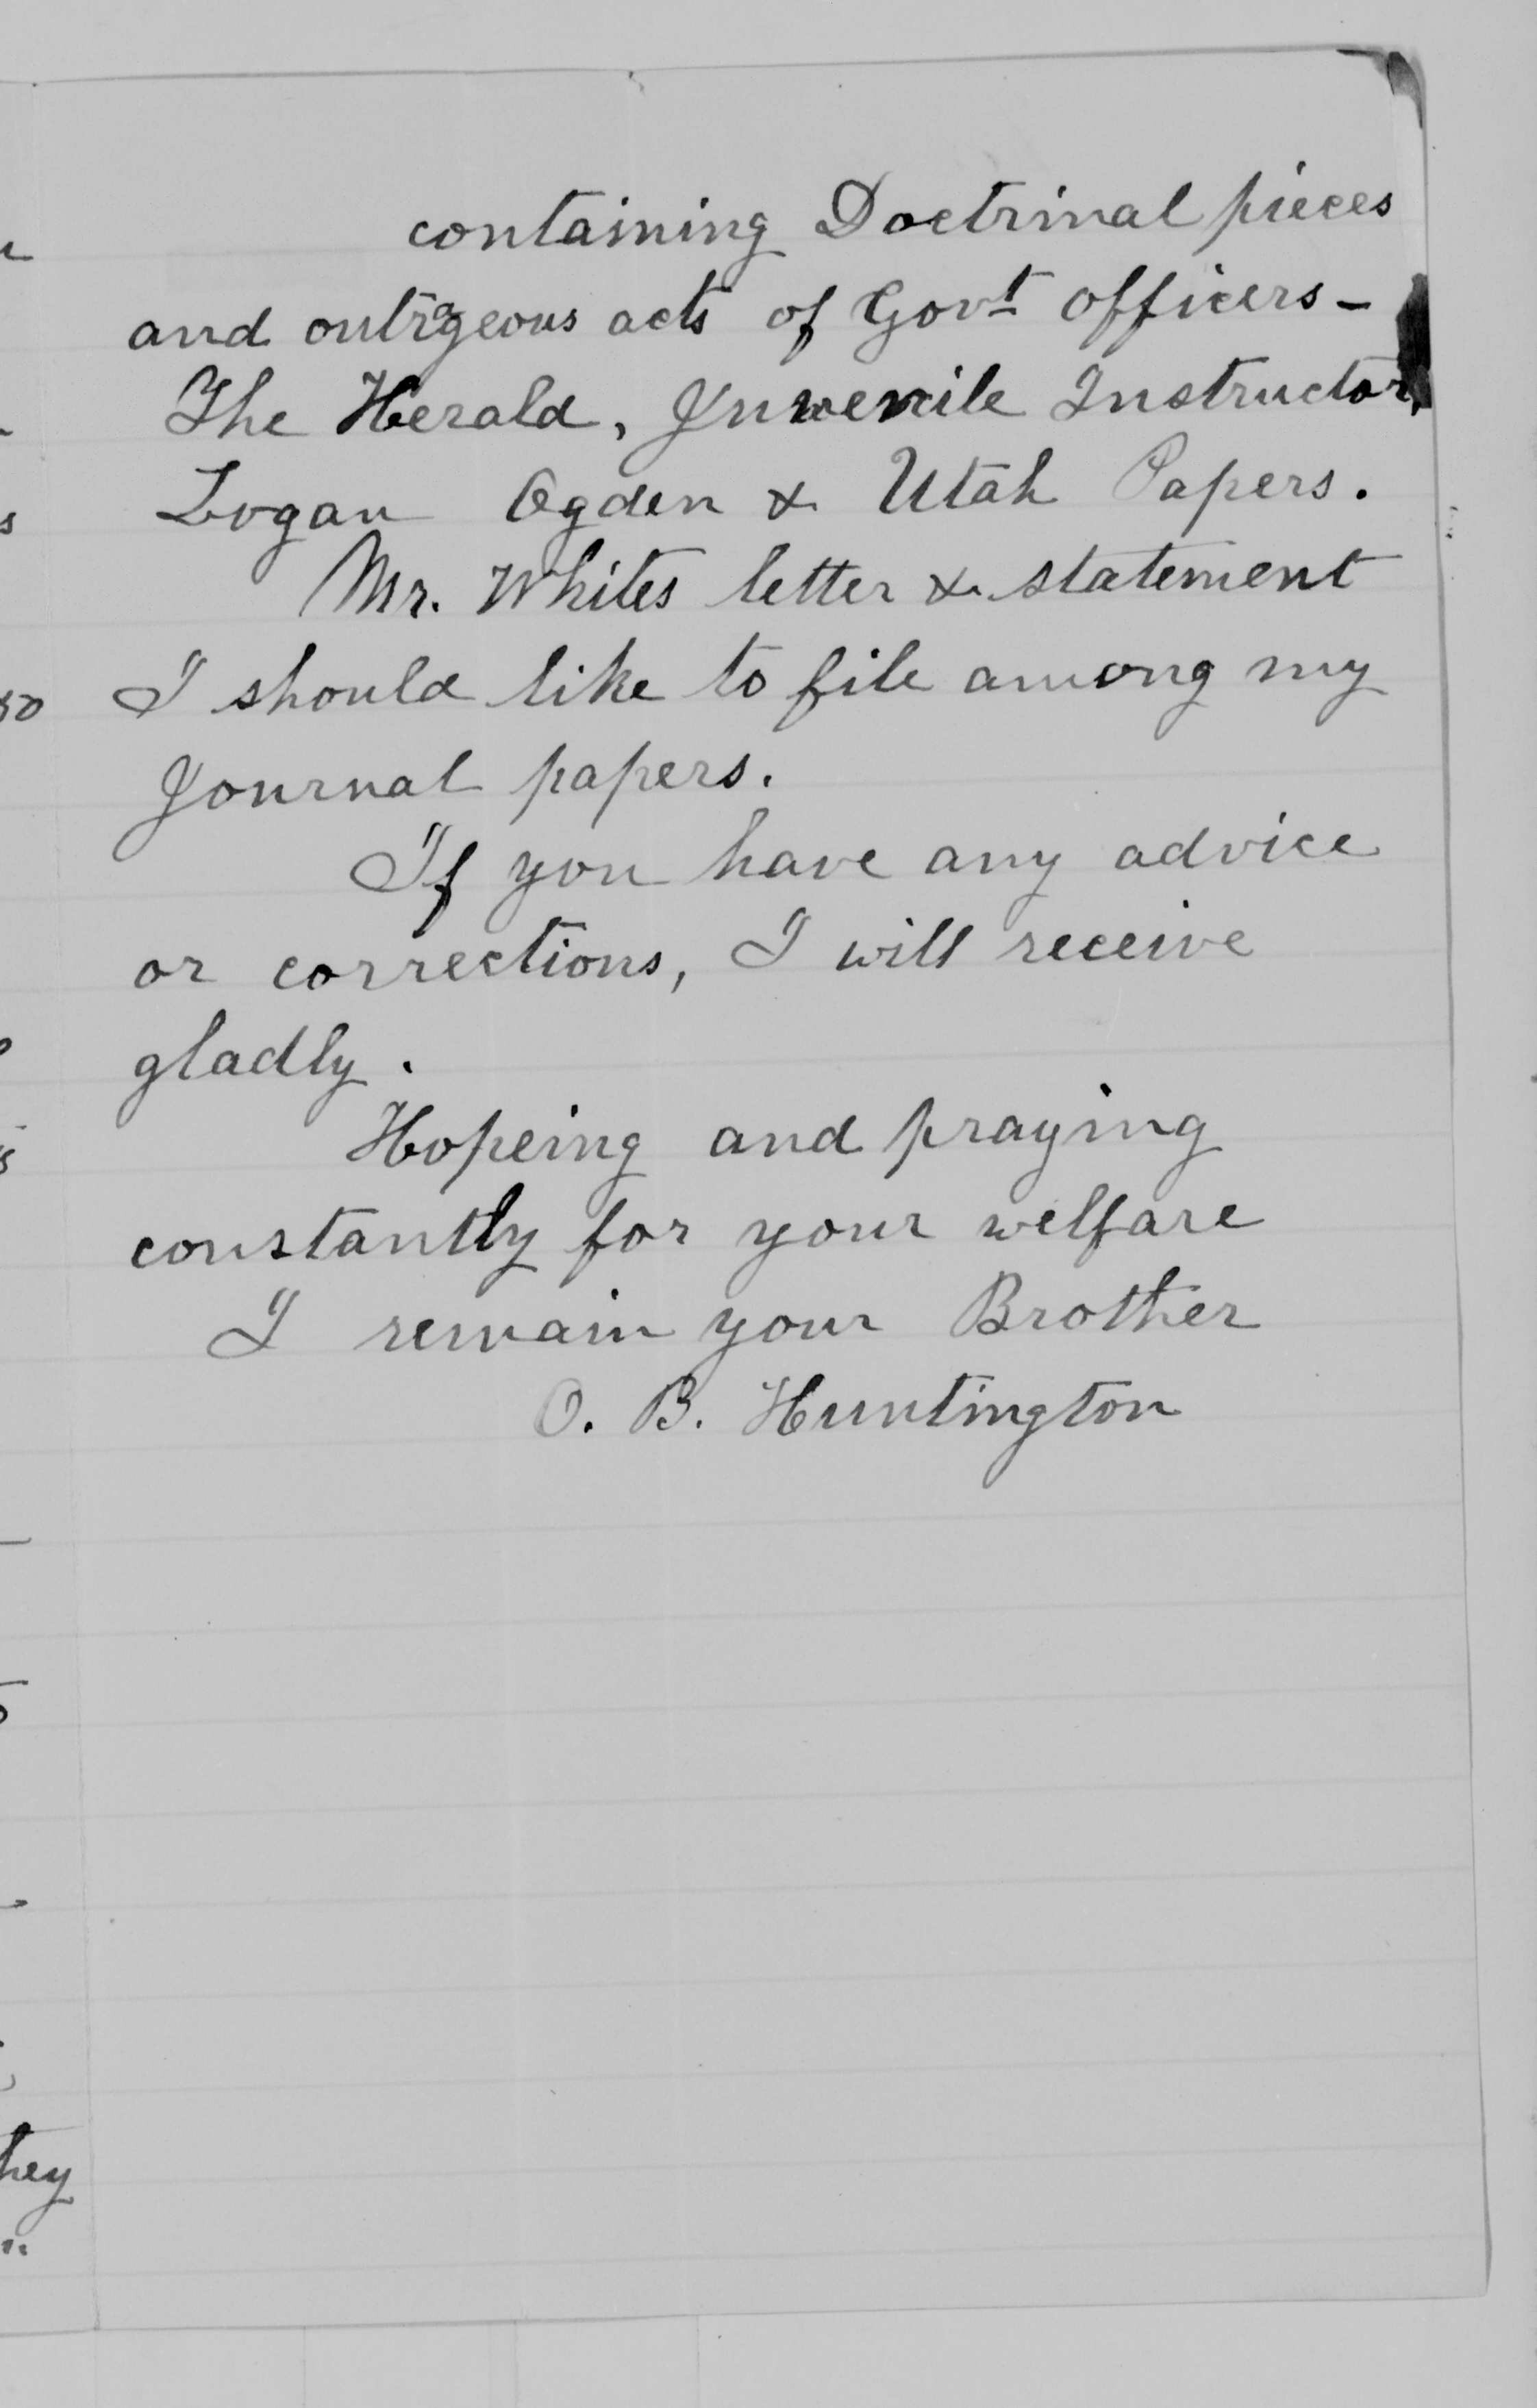 containing Doctrinal pieces
and outrageous acts of Govt officers -
The Herald, Juvenile Instructor,
Logan Ogden & Utah Papers.
Mr. Whites letter & statement
I should like to file among my
Journal papers.
If you have any advice
or corrections, I will receive
gladly.
Hopeing and praying
constantly for your welfare
I remain your Brother
O. B. Huntington